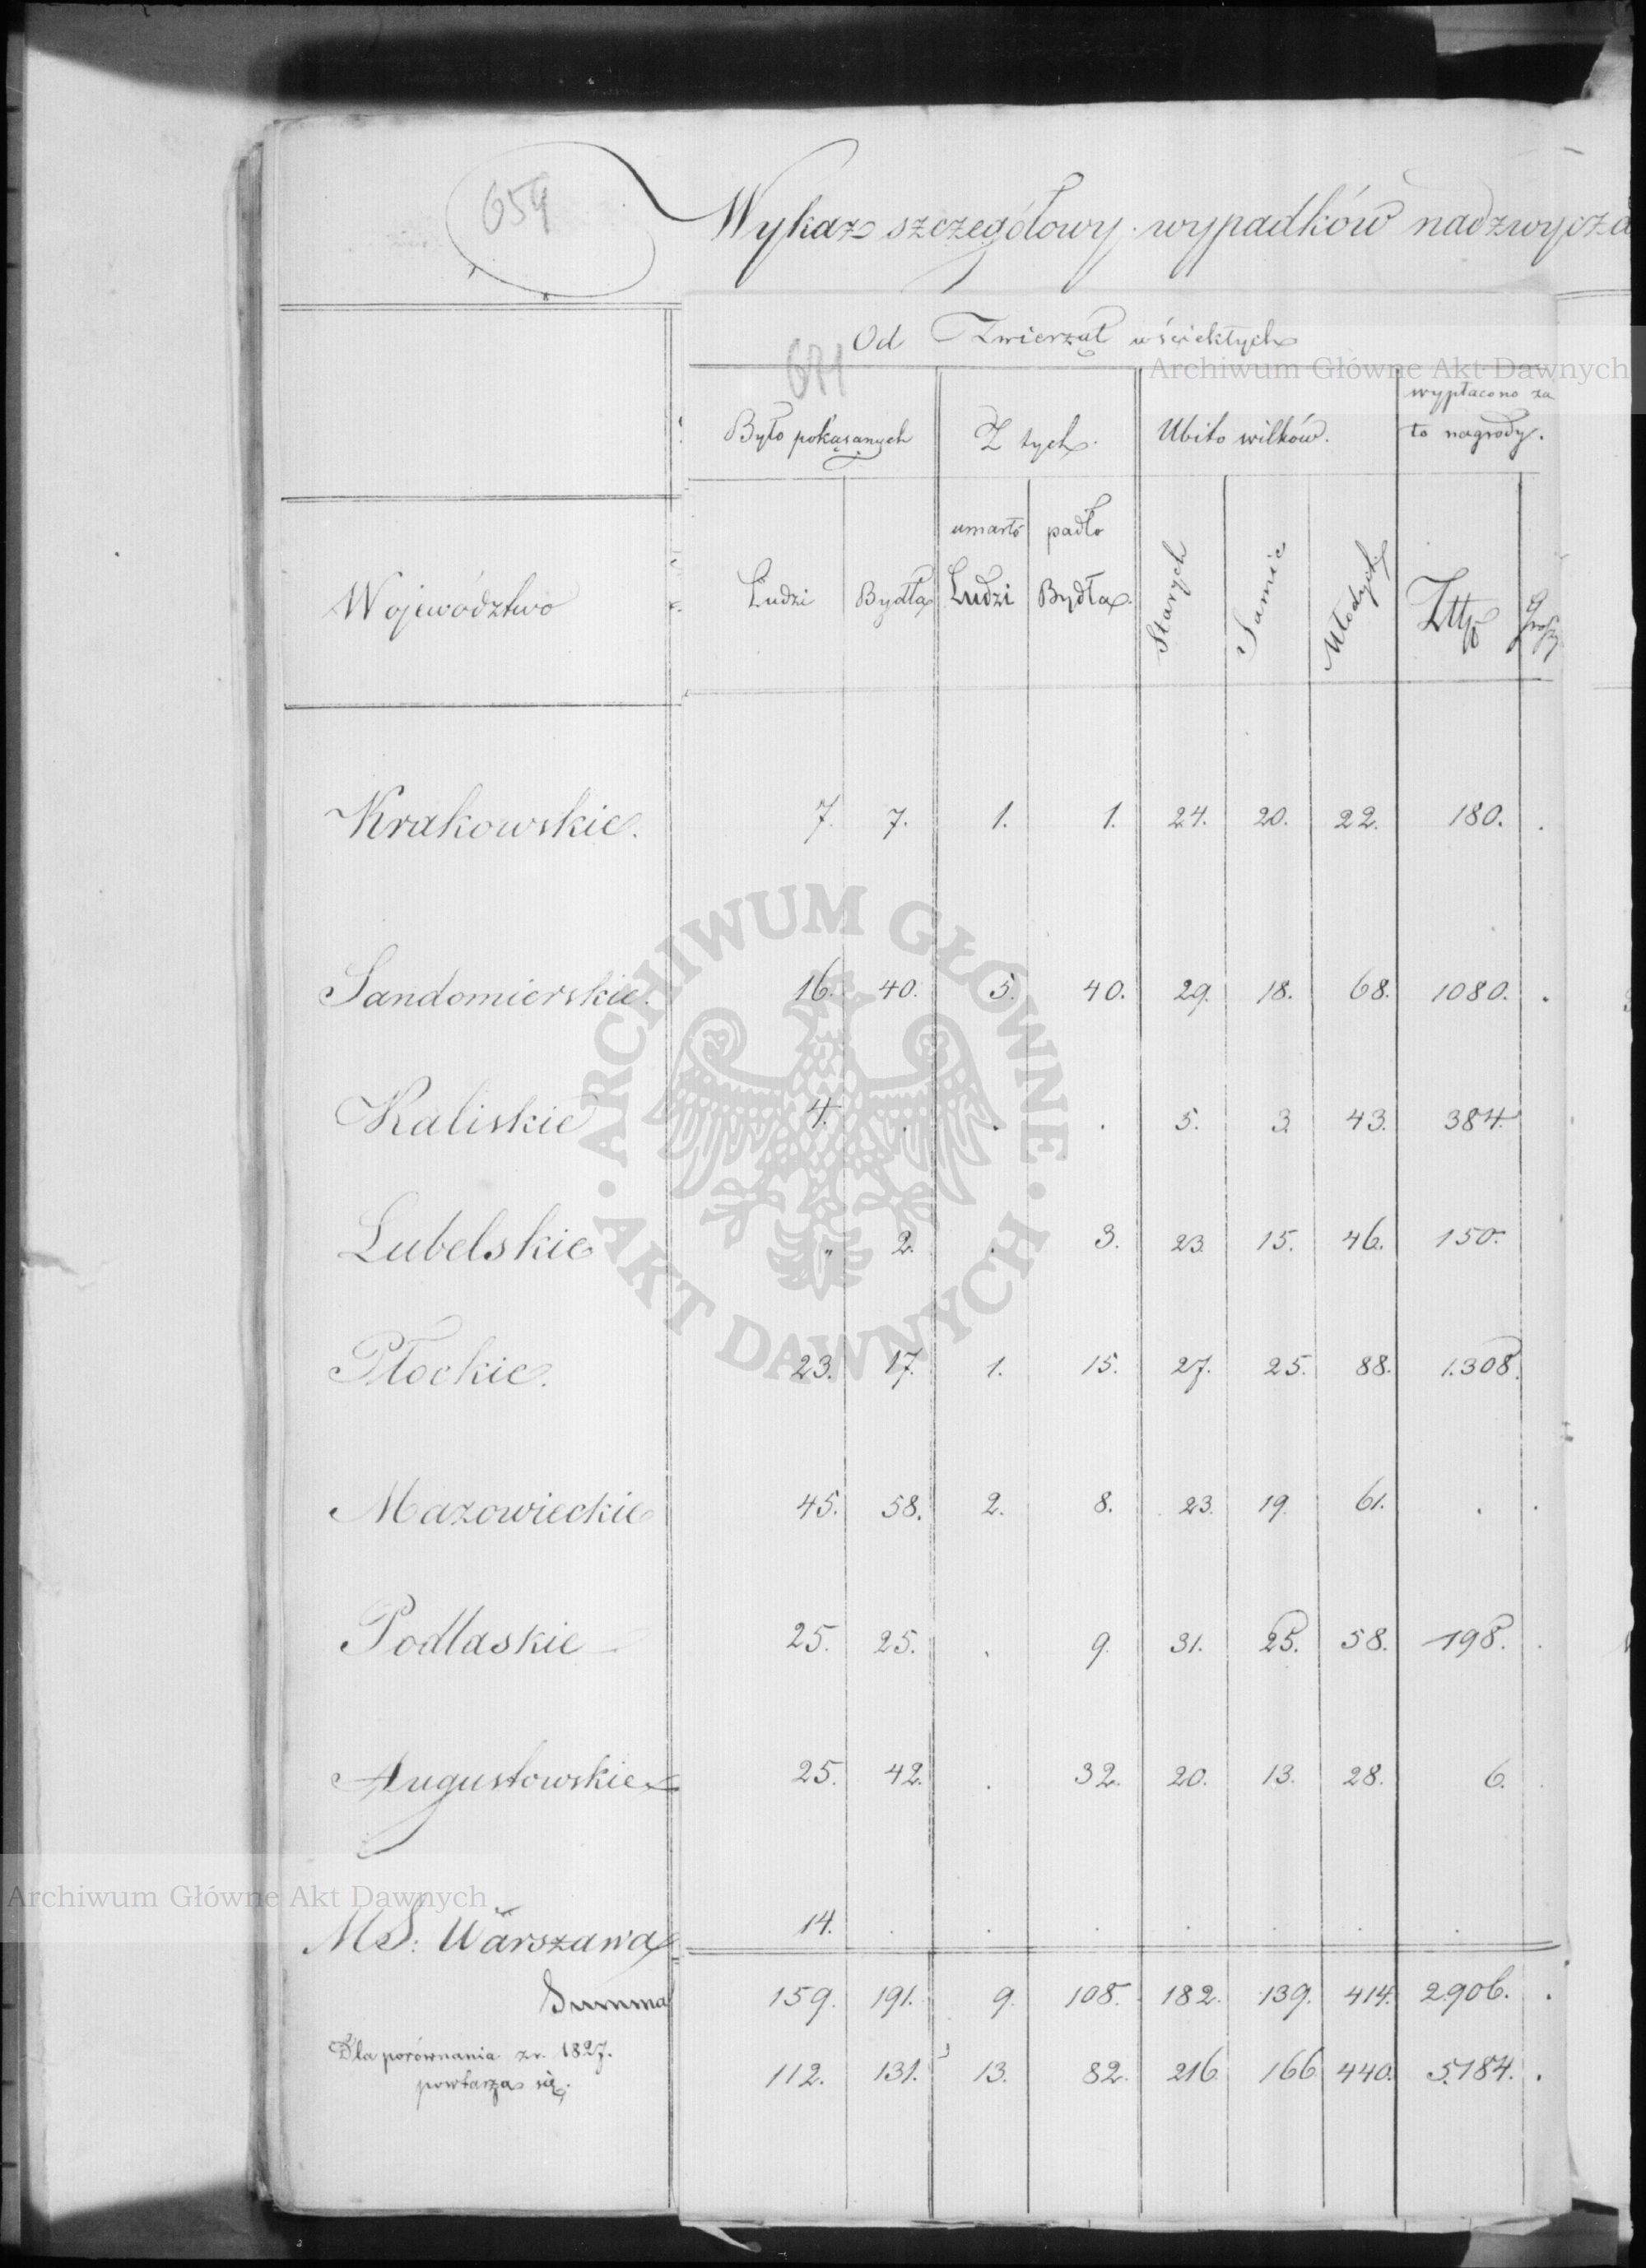 659
Wykaz szczegółowy wypadków nadzwycza
Od Zwierząt wściekłych
671
Archiwum Główne Akt Dawnych
Było pokąsanych Z tych. Ubito wilków. wypłacono za
to nagrody.
umarło padło
Województwo Ludzi Bydła Ludzi Bydła. Starych Samic Młodych Złtp Groszy
Krakowskie. 7. 7. 1. 1. 24. 20. 22. 180. .
Sandomierskie. 16. 40. 5. 40. 29. 18. 68. 1080. .
Kaliskie 4. . . . 5. 3 43. 384.
Lubelskie " 2. . 3. 23. 15. 46. 150.
Płockie. 23. 17. 1. 15. 27. 25. 88. 1.308.
Mazowieckie 45. 58. 2. 8. 23. 19. 61. . .
Podlaskie 25. 25. . 9. 31. 25. 58. 198. .
Augustowskie 25. 42. . 32. 20. 13. 28. 6. .
MS: Warszawa 14. . . . . . . .
Summa 159. 191. 9. 108. 182. 139. 414. 2906. .
Dla porównania z r. 1827.
powtarza się. 112. 131. 13. 82. 216. 166 440. 5.184. .
ARCHIWUM GŁÓWNE
AKT DAWNYCH
Archiwum Główne Akt Dawnych